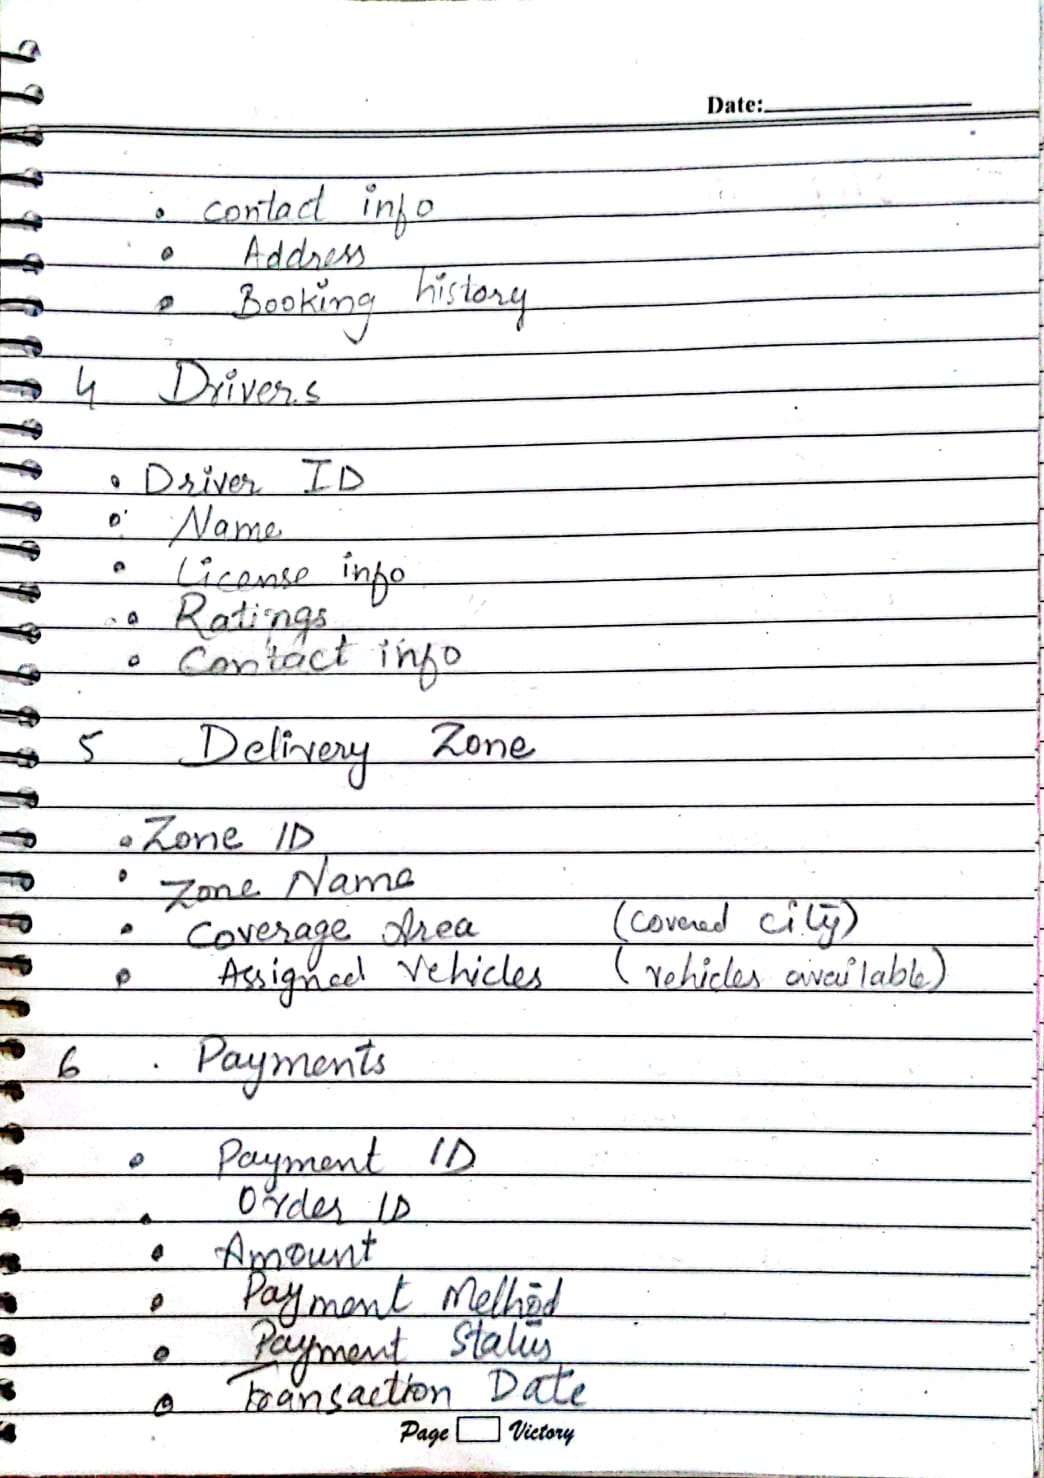 Date:
• Contact info
• Address
• Booking history
4 Drivers
• Driver ID
• Name
• License info
• Ratings
• Contact info
5 Delivery Zone
• Zone ID
• Zone Name
• Coverage Area (covered city)
• Assigned Vehicles (vehicles available)
6 . Payments
• Payment ID
• Order ID
• Amount
• Payment Method
• Payment Status
• Transaction Date
Page Victory